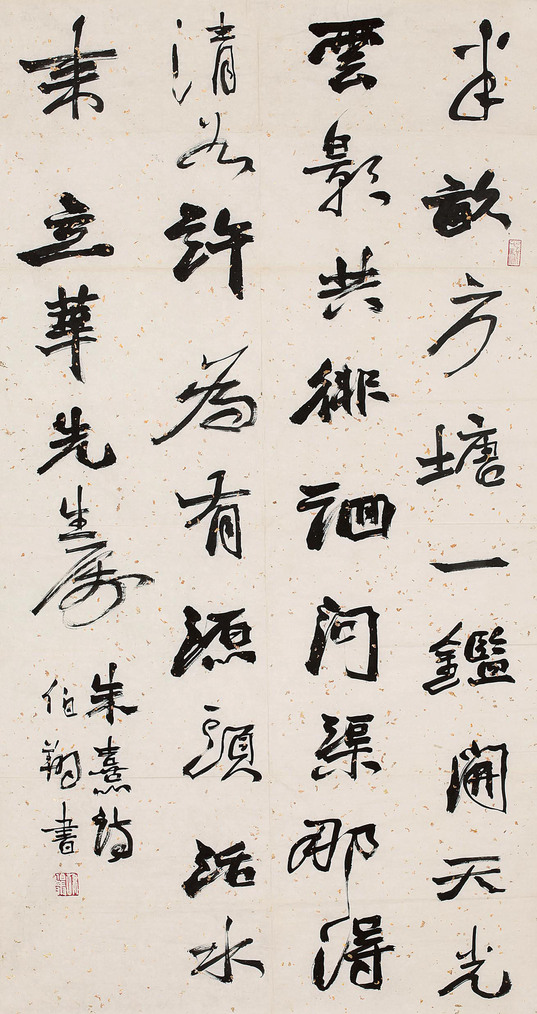 半畝方塘一鑑開天光
雲影共徘徊問渠那得
清如許為有源頭活水
来 立華先生属
朱熹詩
伯翔書